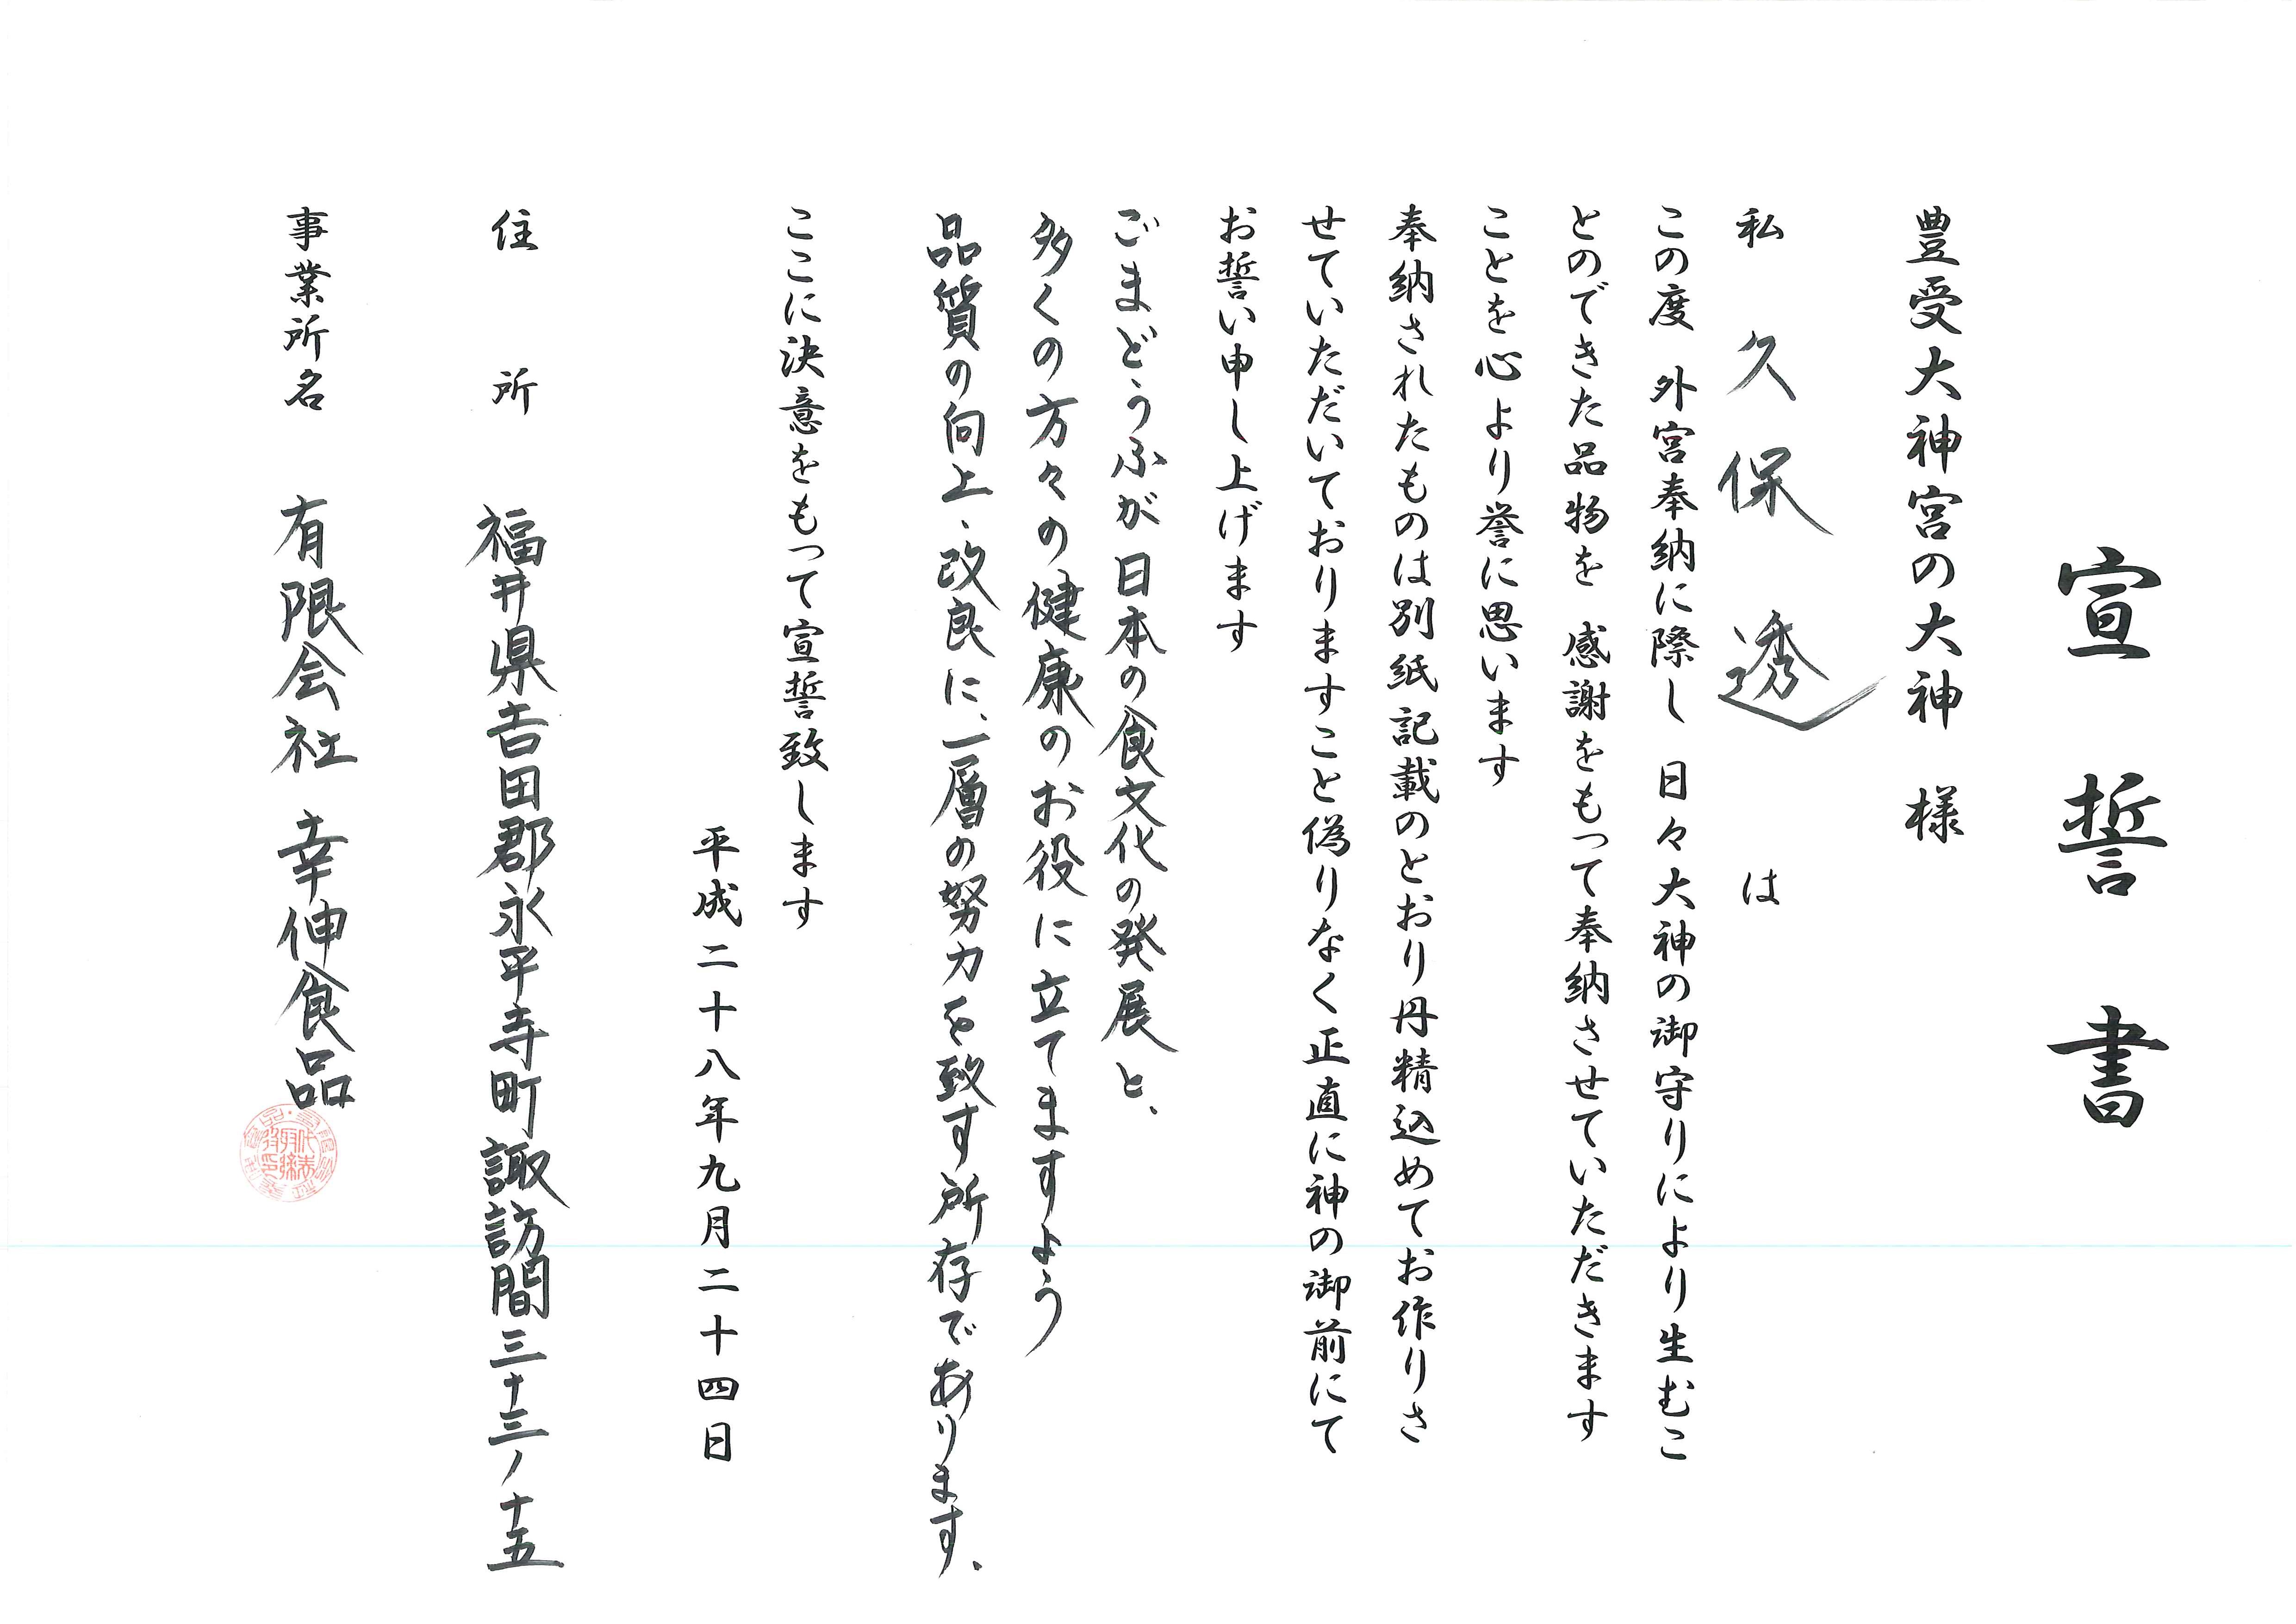 宣誓書
豊受大神宮の大神 様
私 久保 透 は
この度 外宮奉納に際し 日々大神の御守りにより生むこ
とのできた品物を 感謝をもって奉納させていただきます
ことを心より誉に思います
奉納されたものは別紙記載のとおり丹精込めてお作りさ
せていただいておりますこと偽りなく正直に神の御前にて
お誓い申し上げます
ごまどうふが日本の食文化の発展と、
多くの方々の健康のお役に立てますよう
品質の向上、改良に、一層の努力を致す所存であります、
ここに決意をもって宣誓致します
平成二十八年九月二十四日
住所 福井県吉田郡永平寺町諏訪間三十三ノ十五
事業所名 有限会社 幸伸食品